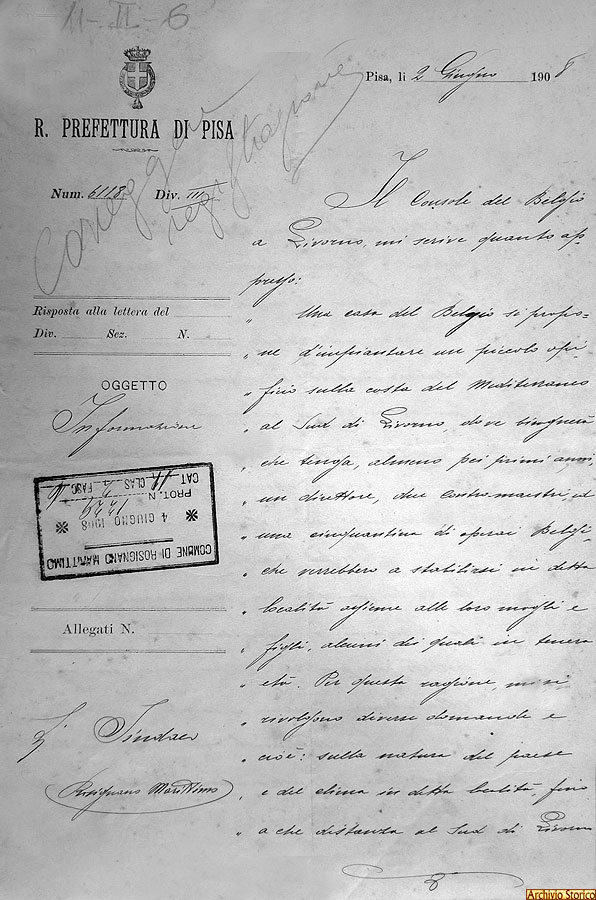 11-II-6
Pisa, li 2 Giugno 1908
R. PREFETTURA DI PISA
Num. 6118 Div. III
Risposta alla lettera del
Div. Sez. N.
OGGETTO
Informazioni
COMUNE DI ROSIGNANO MARITTIMO
4 GIUGNO 1908
PROT. N.
CAT. CLAS FASC
Allegati N.
Sindaco
Rosignano Marittimo
Il Console del Belgio
a Livorno, mi scrive quanto ap-
presso:
" Una casa del Belgio si propo-
" ne d'impiantare un piccolo opi-
" ficio sulla costa del Mediterraneo
" al Sud di Livorno, dove bisognerà
" che tenga, almeno pei primi anni,
" un direttore, due contromaestri ed
" una cinquantina di operai Belgi
" che verrebbero a stabilirsi in detta
" località assieme alle loro mogli e
" figli, alcuni dei quali in tenera
" età. Per questa ragione, mi si
" rivolgono diverse domande e
" cioè: sulla natura del paese
" e del clima in detta località, fino
" a che distanza al Sud di Livorno
Archivio Storico